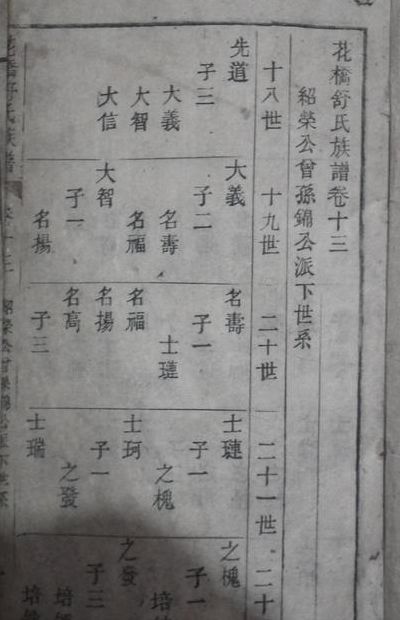 花橋舒氏族譜卷十三
紹榮公曾孫錦公派下世系
十八世
十九世
二十世
二十一世
二十
先道
子三
大義
大智
大信
大義
子二
名壽
名福
大智
子一
名揚
名壽
子一
士璉
名福
名揚
名高
子三
士璉
子一
之槐
士珂
子一
之發
士瑞
之槐
子一
培
之發
子三
培
培
花橋舒氏族譜
紹榮公曾孫錦公派下世系